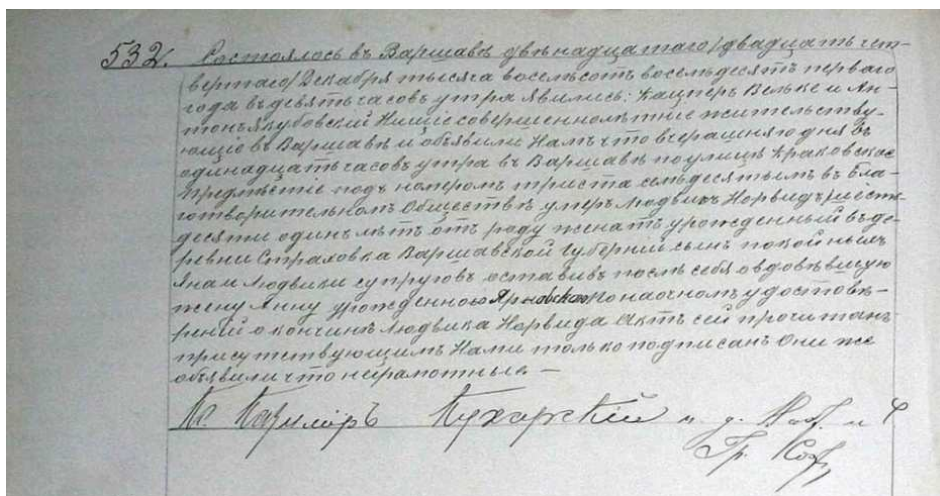 532. Состоялось въ Варшавѣ двѣнадцатаго/двадцать чет-
вертаго/ Декабря тысяча восемьсотъ восемьдесятъ перваго
года въ девять часовъ утра явились: Кацперъ Вельке и Ан-
тонъ Якубовскій Нищіе совершеннолѣтніе жительству-
ющіе въ Варшавѣ и объявили Намъ что вчерашняго дня въ
одинадцать часовъ утра въ Варшавѣ по улицѣ Краковское
Предмѣстіе подъ номеромъ триста семьдесятымъ въ Бла-
готворительномъ Обществѣ умеръ Людвикъ Норвидъ шесть-
десяти одинъ лѣтъ отъ роду женатъ урожденный въ де-
ревни Страховка Варшавской Губерній сынъ покойныхъ
Яна и Людвики супруговъ оставивъ послѣ себя овдовѣвшую
жену Анну урожденною по наочномъ удостовѣ-
реній о кончинѣ Людвика Норвида Актъ сей прочитанъ
присутствующимъ Нами только подписанъ Они же
объявили что неграмотные —
Кс. Казиміръ Кухарскій и. д.
Гр.